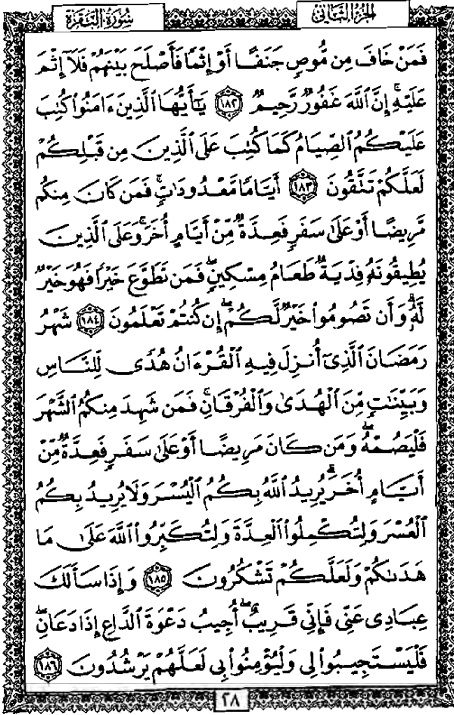 سُورَةُ البَقَرَةِ الجُزءُ الثَّانِي
فَمَنْ خَافَ مِن مُّوصٍ جَنَفًا أَوْ إِثْمًا فَأَصْلَحَ بَيْنَهُمْ فَلَآ إِثْمَ
عَلَيْهِ ۚ إِنَّ ٱللَّهَ غَفُورٌ رَّحِيمٌ ١٨٢ يَٰٓأَيُّهَا ٱلَّذِينَ ءَامَنُوا۟ كُتِبَ
عَلَيْكُمُ ٱلصِّيَامُ كَمَا كُتِبَ عَلَى ٱلَّذِينَ مِن قَبْلِكُمْ
لَعَلَّكُمْ تَتَّقُونَ ١٨٣ أَيَّامًا مَّعْدُودَٰتٍ ۚ فَمَن كَانَ مِنكُم
مَّرِيضًا أَوْ عَلَىٰ سَفَرٍ فَعِدَّةٌ مِّنْ أَيَّامٍ أُخَرَ ۚ وَعَلَى ٱلَّذِينَ
يُطِيقُونَهُۥ فِدْيَةٌ طَعَامُ مِسْكِينٍ ۖ فَمَن تَطَوَّعَ خَيْرًا فَهُوَ خَيْرٌ
لَّهُۥ ۚ وَأَن تَصُومُوا۟ خَيْرٌ لَّكُمْ ۖ إِن كُنتُمْ تَعْلَمُونَ ١٨٤ شَهْرُ
رَمَضَانَ ٱلَّذِىٓ أُنزِلَ فِيهِ ٱلْقُرْءَانُ هُدًى لِّلنَّاسِ
وَبَيِّنَٰتٍ مِّنَ ٱلْهُدَىٰ وَٱلْفُرْقَانِ ۚ فَمَن شَهِدَ مِنكُمُ ٱلشَّهْرَ
فَلْيَصُمْهُ ۖ وَمَن كَانَ مَرِيضًا أَوْ عَلَىٰ سَفَرٍ فَعِدَّةٌ مِّنْ
أَيَّامٍ أُخَرَ ۗ يُرِيدُ ٱللَّهُ بِكُمُ ٱلْيُسْرَ وَلَا يُرِيدُ بِكُمُ
ٱلْعُسْرَ وَلِتُكْمِلُوا۟ ٱلْعِدَّةَ وَلِتُكَبِّرُوا۟ ٱللَّهَ عَلَىٰ مَا
هَدَىٰكُمْ وَلَعَلَّكُمْ تَشْكُرُونَ ١٨٥ وَإِذَا سَأَلَكَ
عِبَادِى عَنِّى فَإِنِّى قَرِيبٌ ۖ أُجِيبُ دَعْوَةَ ٱلدَّاعِ إِذَا دَعَانِ ۖ
فَلْيَسْتَجِيبُوا۟ لِى وَلْيُؤْمِنُوا۟ بِى لَعَلَّهُمْ يَرْشُدُونَ ١٨٦
٢٨